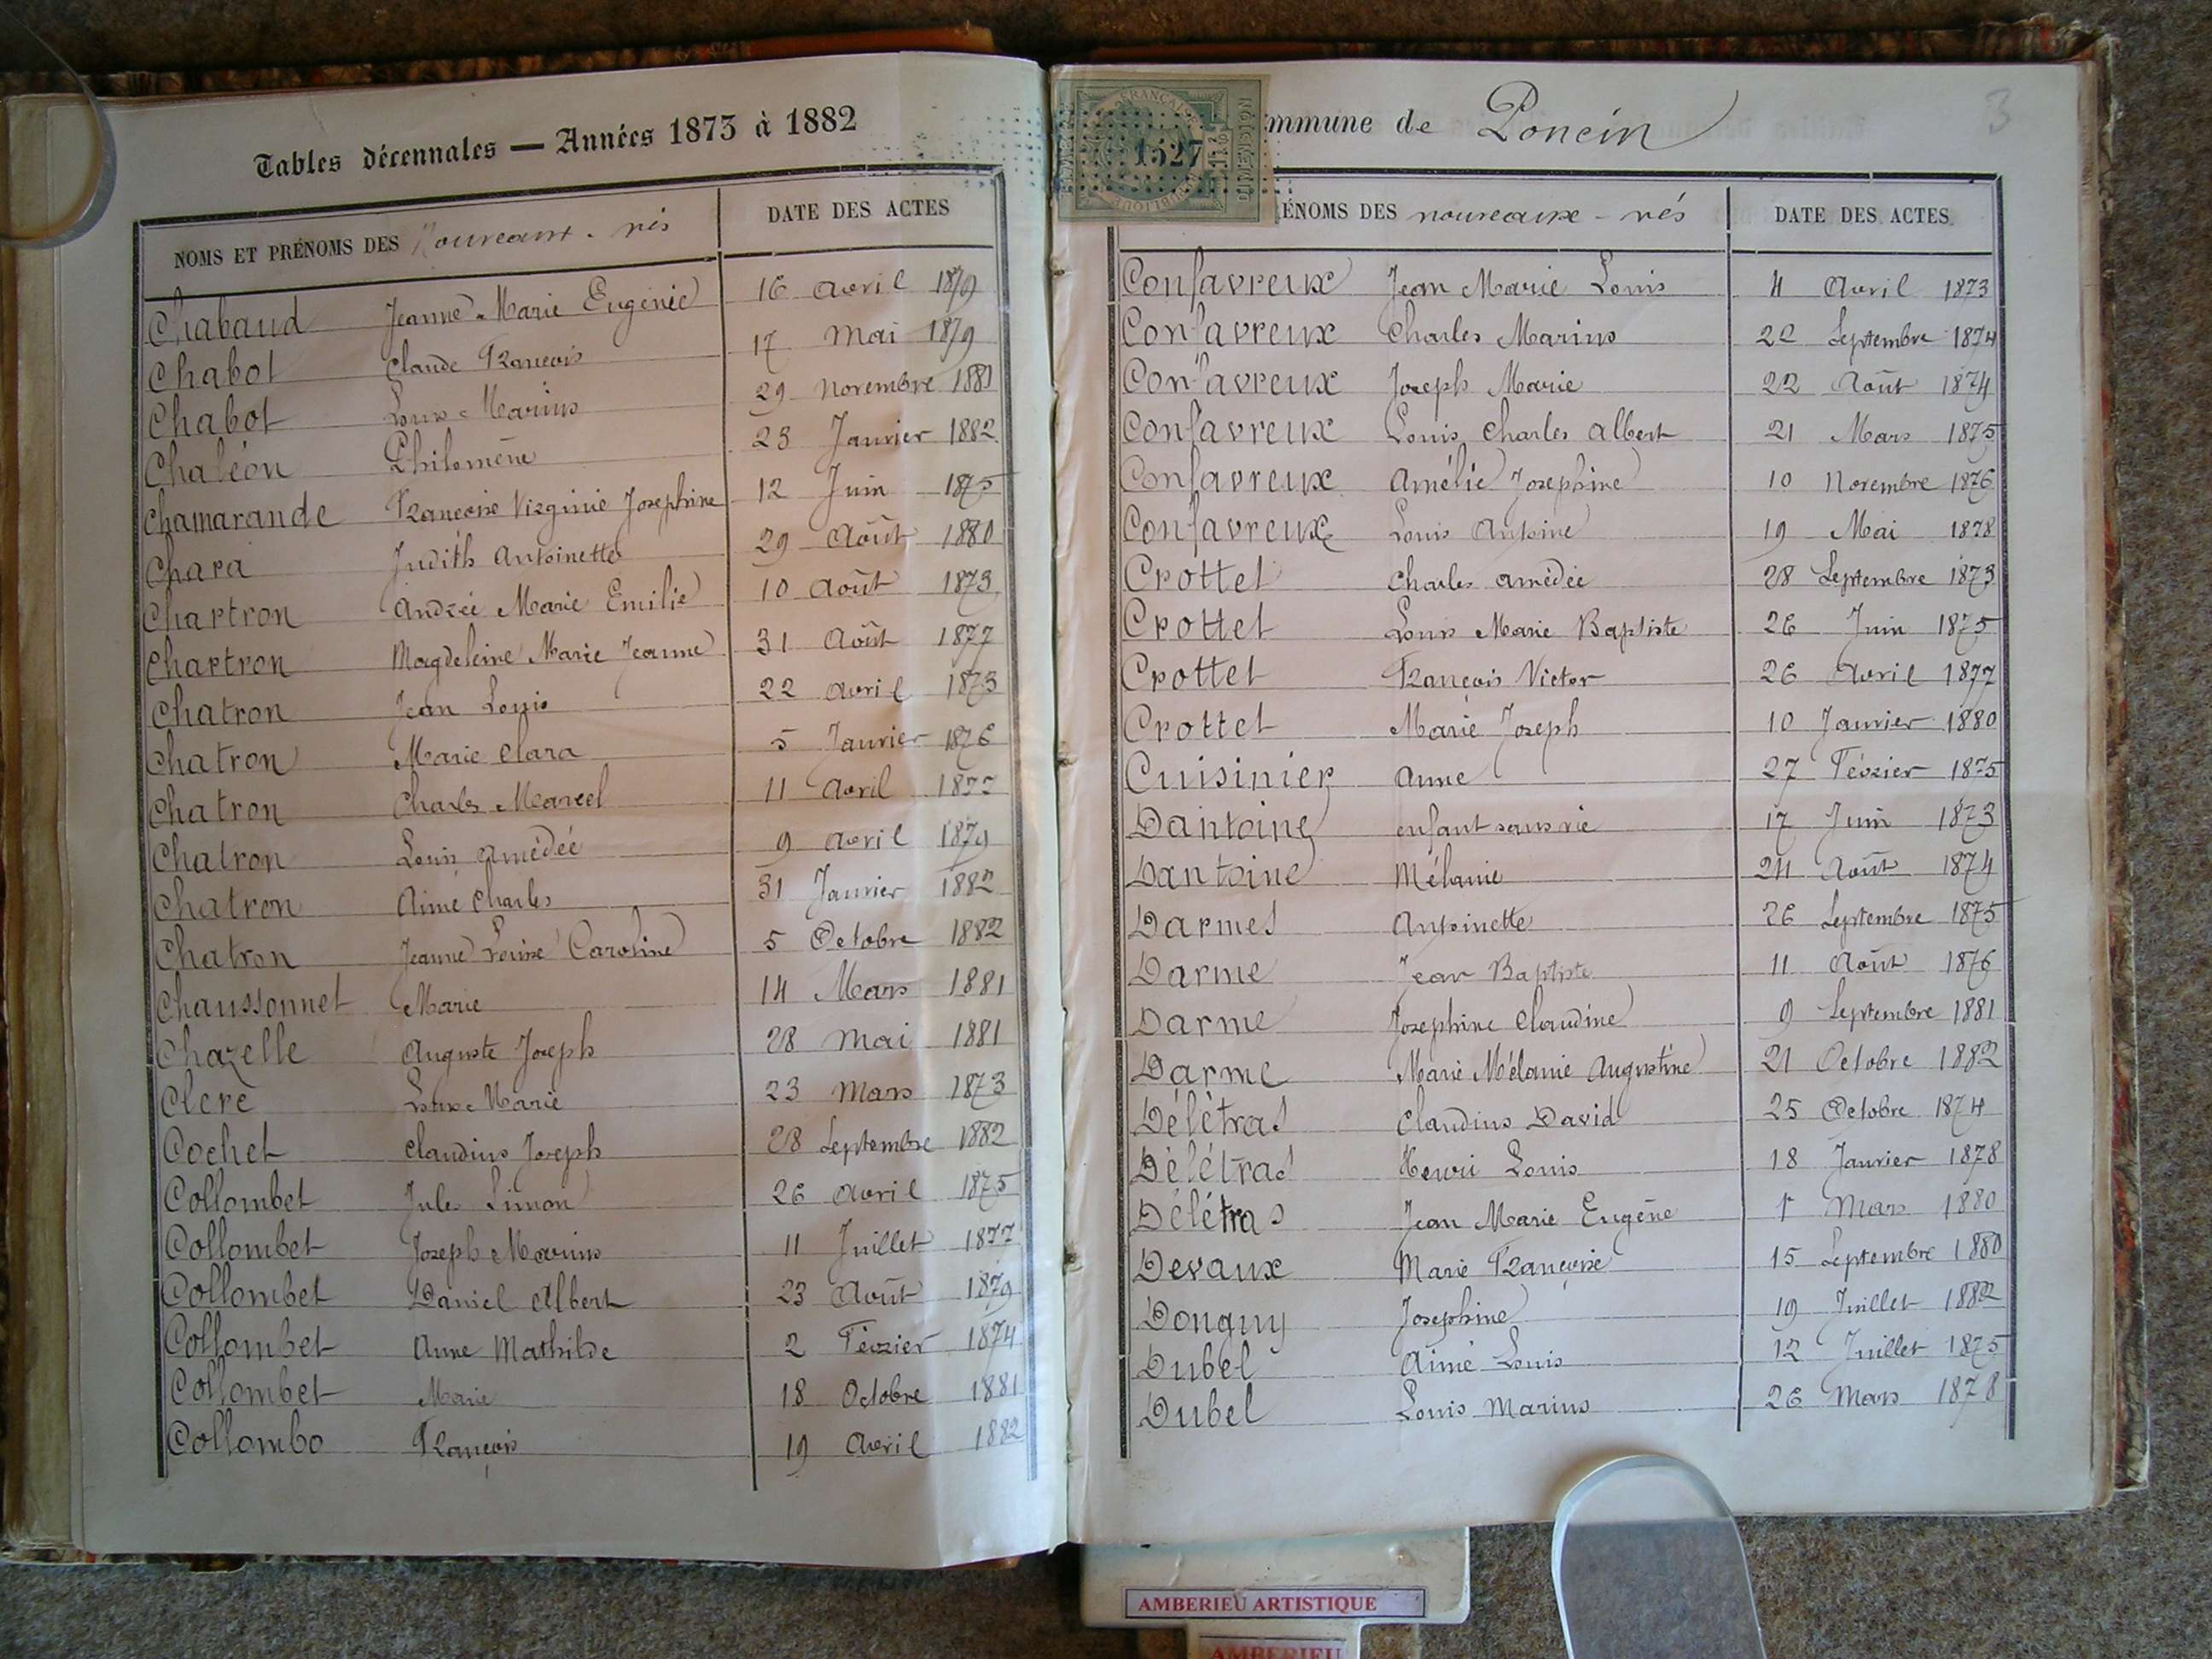 Tables décennales — Années 1873 à 1882
NOMS ET PRÉNOMS DES Nouveaux-nés DATE DES ACTES
Chabaud Jeanne Marie Eugénie 16 Avril 1879
Chabot Claude François 17 Mai 1879
Chabot Louis Marius 29 Novembre 1881
Chaléon Philomène 23 Janvier 1882
Chamarande Françoise Virginie Josephine 12 Juin 1875
Chara Judith Antoinette 29 Août 1880
Chartron Andrée Marie Emilie 10 Août 1873
Chartron Magdeleine Marie Jeanne 31 Août 1877
Chatron Jean Louis 22 Avril 1873
Chatron Marie Clara 5 Janvier 1876
Chatron Charles Marcel 11 Avril 1877
Chatron Louis Amédée 9 Avril 1879
Chatron Aimé Charles 31 Janvier 1882
Chatron Jeanne Louise Caroline 5 Octobre 1882
Chaussonnet Marie 14 Mars 1881
Chazelle Auguste Joseph 28 Mai 1881
Clere Marie 23 Mars 1873
Cochet Claudius Joseph 28 Septembre 1882
Collombet Jules Simon 26 Avril 1875
Collombet Joseph Marius 11 Juillet 1877
Collombet Daniel Albert 23 Août 1879
Collombet Anne Mathilde 2 Février 1874
Collombet Marie 18 Octobre 1881
Collombo François 19 Avril 1882
mmune de Poncin
3
FRANÇAISE
1527
DIMENSION
ÉNOMS DES nouveaux-nés DATE DES ACTES
Confavreux Jean Marie Louis 4 Avril 1873
Confavreux Charles Marius 22 Septembre 1874
Confavreux Joseph Marie 22 Août 1874
Confavreux Louis Charles Albert 21 Mars 1875
Confavreux Amélie Josephine 10 Novembre 1876
Confavreux Louis Antoine 19 Mai 1878
Crottet Charles Amédée 28 Septembre 1873
Crottet Louis Marie Baptiste 26 Juin 1875
Crottet François Victor 26 Avril 1877
Crottet Marie Joseph 10 Janvier 1880
Cuisinier Anne 27 Février 1875
Dantoine enfant sans vie 17 Juin 1873
Dantoine Mélanie 24 Août 1874
Darmes Antoinette 26 Septembre 1875
Darme Jean Baptiste 11 Août 1876
Darme Josephine Claudine 9 Septembre 1881
Darme Marie Mélanie Augustine 21 Octobre 1882
Délétras Claudius David 25 Octobre 1874
Délétras Henri Louis 18 Janvier 1878
Délétras Jean Marie Eugène 1r Mars 1880
Devaux Marie Françoise 15 Septembre 1880
Donguy Josephine 19 Juillet 1882
Dubel Aimé Louis 12 Juillet 1875
Dubel Louis Marius 26 Mars 1878
AMBERIEU ARTISTIQUE
AMBERIEU